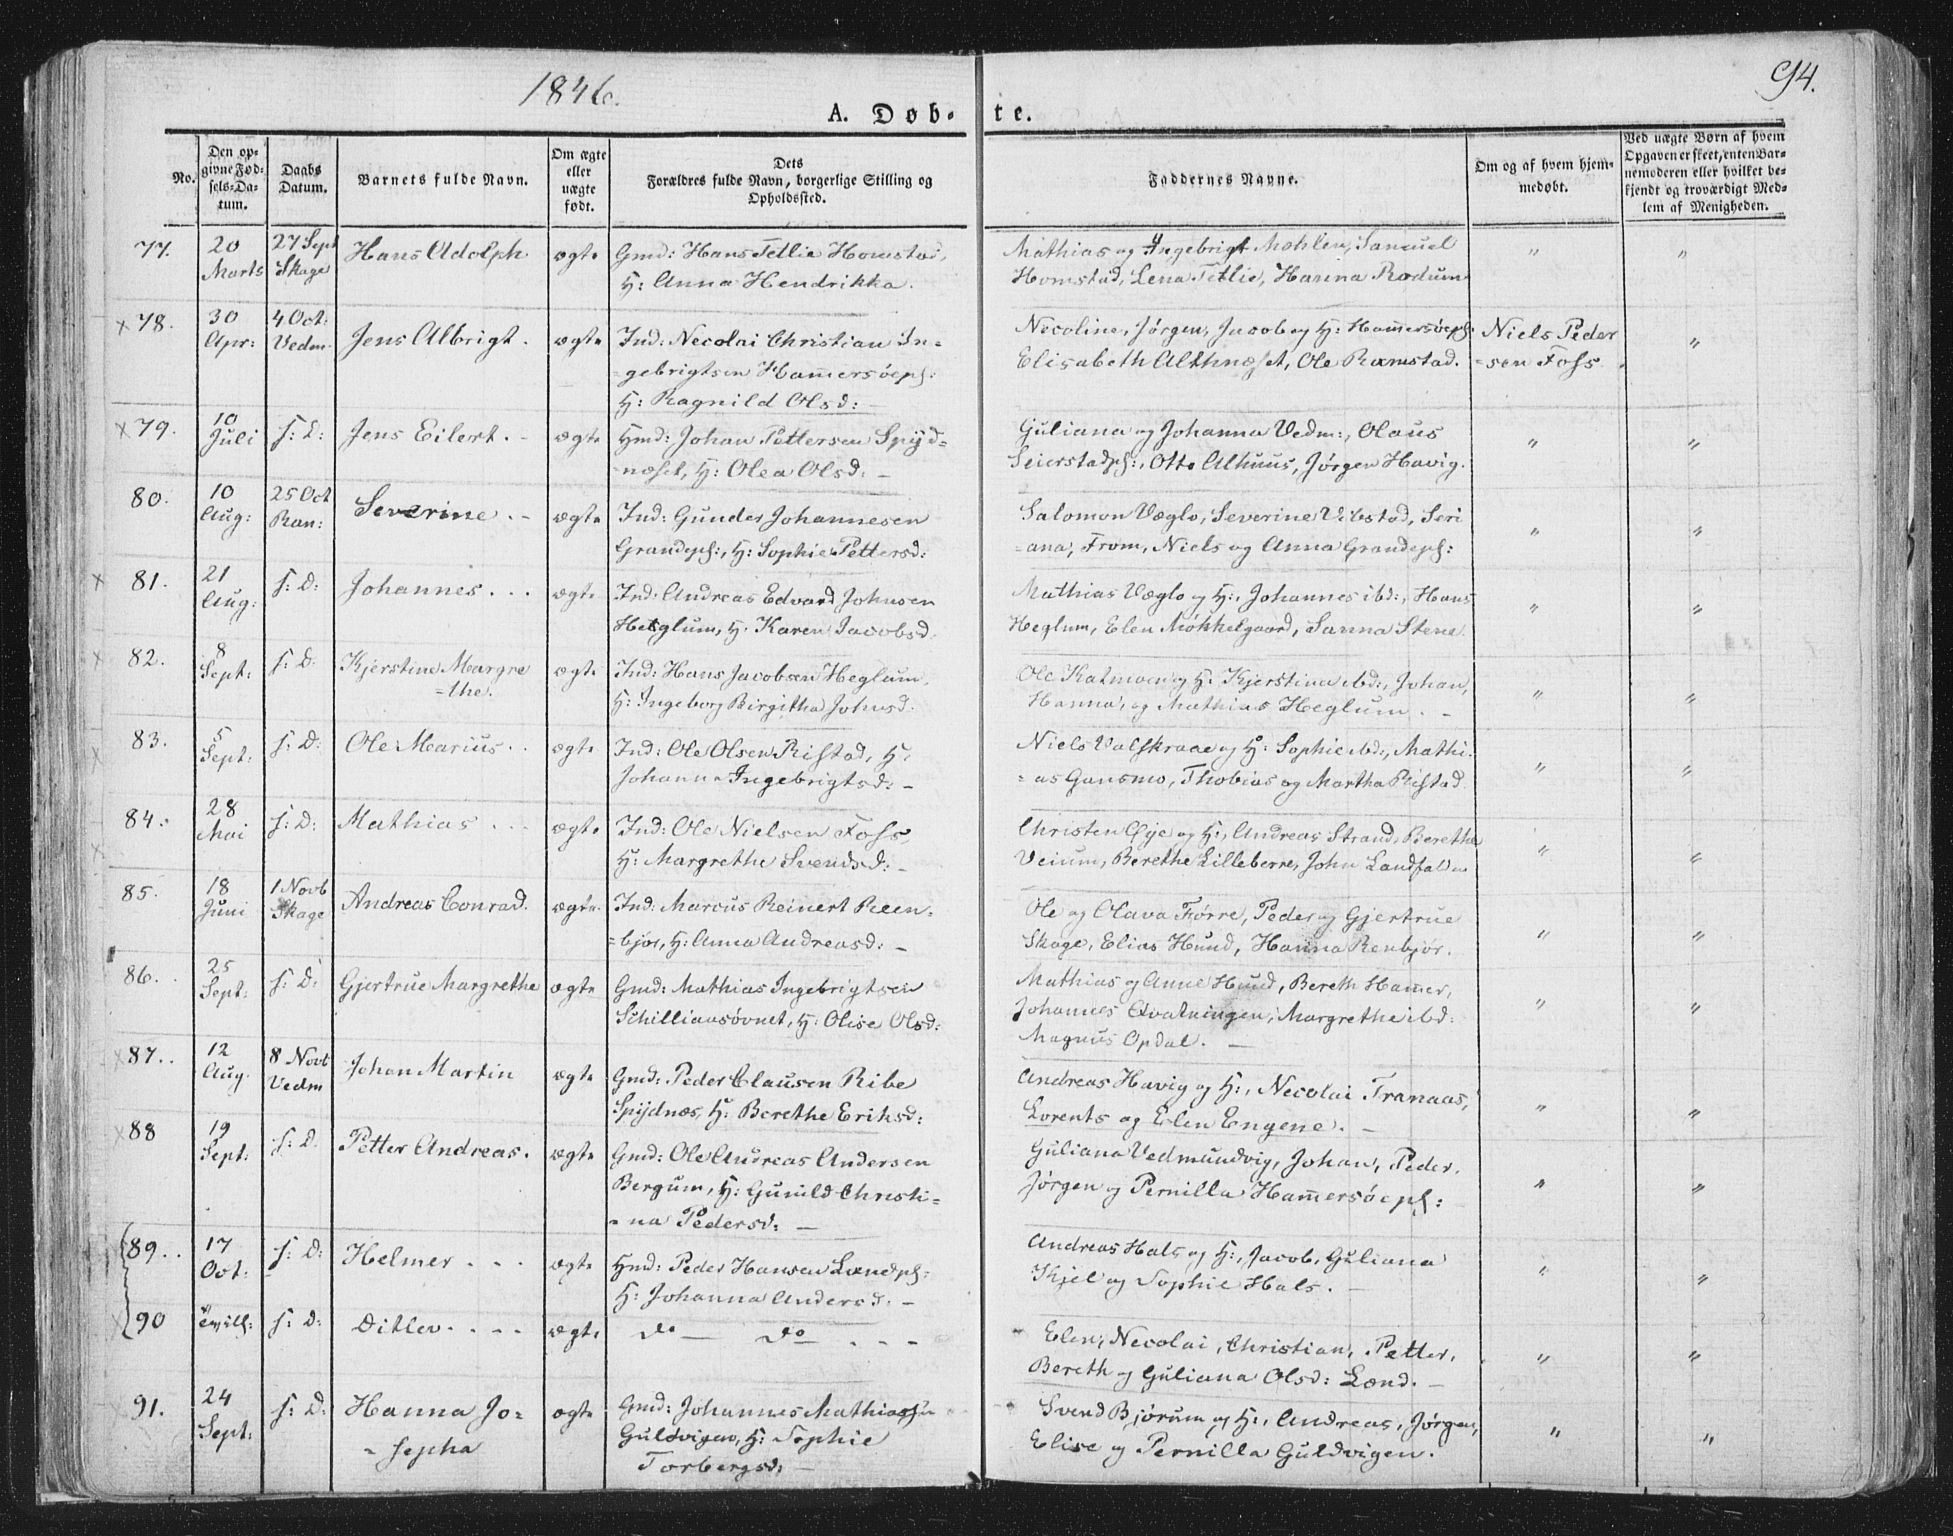 1846.
94.
A. Døb-
te.
No.
Den op-
givne Fød-
sels-Da-
tum.
Daabs
Datum.
Barnets fulde Navn.
Om ægte
eller
uægte
født.
Dets
Forældres fulde Navn, borgerlige Stilling og
Opholdssted.
Faddernes Navne.
Om og af hvem hjem-
medøbt.
Ved uægte Børn af hvem
Opgaven er skeet, enten Bar-
nemoderen eller hvilket be-
kjendt og troværdigt Med-
lem af Menigheden.
77. 20 Marts 27 Sept Skage Hans Adolph ægte Gmd: Hans Tetlie Homstad,
H: Anna Hendrikka.
Mathias og Ingebrigt Mohlen, Samuel
Homstad, Lena Tetlie, Hanna Rodum
" "
x 78. 30 Apr: 4 Oct: Vedm Jens Albrigt. ægte Ind: Necolai Christian In-
=gebrigtsen Hamersöepl:
H: Ragnild Olsd:
Necoline, Jørgen, Jacob og H: Hamersöepl:
Elisabeth Althnæset, Ole Ramstad.
Niels Peder
=sen Foss.
"
x 79. 10 Juli s: D: Jens Eilert. - ægte Hmd: Johan Pettersen Spyd=
=næset, H: Olea Olsd: -
Guliana og Johanna Vedm:, Olaus
Seierstadpl:, Otto Alhuus, Jørgen Havig.
" "
80. 10 Aug: 25 Oct Ran: Severine. - ægte Ind: Gunder Johannesen
Grandepl:, H: Sophie Pettersd:
Salomon Væglo, Severine Vibstad, Seri
=ana, From, Niels og Anna Grandepl:
" "
x 81. 21 Aug: s: D: Johannes... ægte Ind: Andreas Edvard Johnsen
Heglum, H. Karen Jacobsd.
Mathias Væglo og H:, Johannes ibd:, Hans
Heglum, Elen Møkkelgaard, Sanna Stene.
" "
x 82. 8 Sept: s: D: Kjerstine Margre
=the. ægte Ind: Hans Jacobsen Heglum,
H: Ingeborg Birgitha Johnsd.
Ole Katmoen og H: Kjerstina ibd:, Johan,
Hanna, og Mathias Heglum. -
" "
x 83. 5 Sept: s: D: Ole Marius.. ægte Ind: Ole Olsen Ristad, H:
Johanna Ingebrigtsd: -
Niels Valskraae og H: Sophie ibd:, Mathi-
=as Gansmo, Thobias og Martha Ristad
" "
x 84: 28 Mai s: D: Mathias... ægte Ind: Ole Nielsen Foss,
H: Margrethe Svendsd: -
Christen Øye og H:, Andreas Strand, Berethe
Veium, Berethe Lilleberre, John Landfald
" "
85. 18 Juni 1 Novb Skage Andreas Conrad. ægte. Ind: Marcus Reinert Reen-
=bjør, H: Anna Andreasd: -
Ole og OlavaFørre, Peder og Gjertrue
Skage, Elias Hund, Hanna Renbjør.
" "
86. 25 Sept: s: D: Gjertrue Margrethe ægte Gmd: Mathias Ingebrigtsen
Schilliaasövnet, H: Olise Olsd:
Mathias og Anne Hund, Bereth Hamer,
Johannes Qvatningen, Margrethe ibd:
Magnus Opdal. -
" "
x 87.. 12 Aug. 8 Novb Vedm Johan Martin ægte Gmd: Peder Clausen Ribe
Spydnæs, H: Berethe Eriksd:
Andreas Havig og H:, Necolai Tranaas,
Lorents og Elen Engene. -
" "
x 88 19 Sept: s: D. Petter Andreas. ægte Gmd: Ole Andreas Andersen
Bergum, H: Gunild Christi-
=na Pedersd: -
Guliana Vedmundvig, Johan, Peder,
Jørgen og Pernilla Hamersöepl:
" "
89.. 17 Oct: s: D: Helmer... ægte Hmd: Peder Hansen Lændpl:
H: Johanna Andersd: -
Andreas Hals og H:, Jacob, Guliana
Kjel og Sophie Hals. -
" "
90 s: D: Ditlev.... ægte do - do ...
Elen, Necolai, Christian, Petter,
Bereth og Guliana Olsd: Lænd. -
" "
91. 24 Sept: s: D: Hanna Jo=
=sepha ægte Gmd: Johannes Mathiassen
Guldvigen, H: Sophie
Torbergsd: -
Svend Bjørum og H:, Andreas, Jørgen,
Elise og Pernilla Guldvigen.
" "